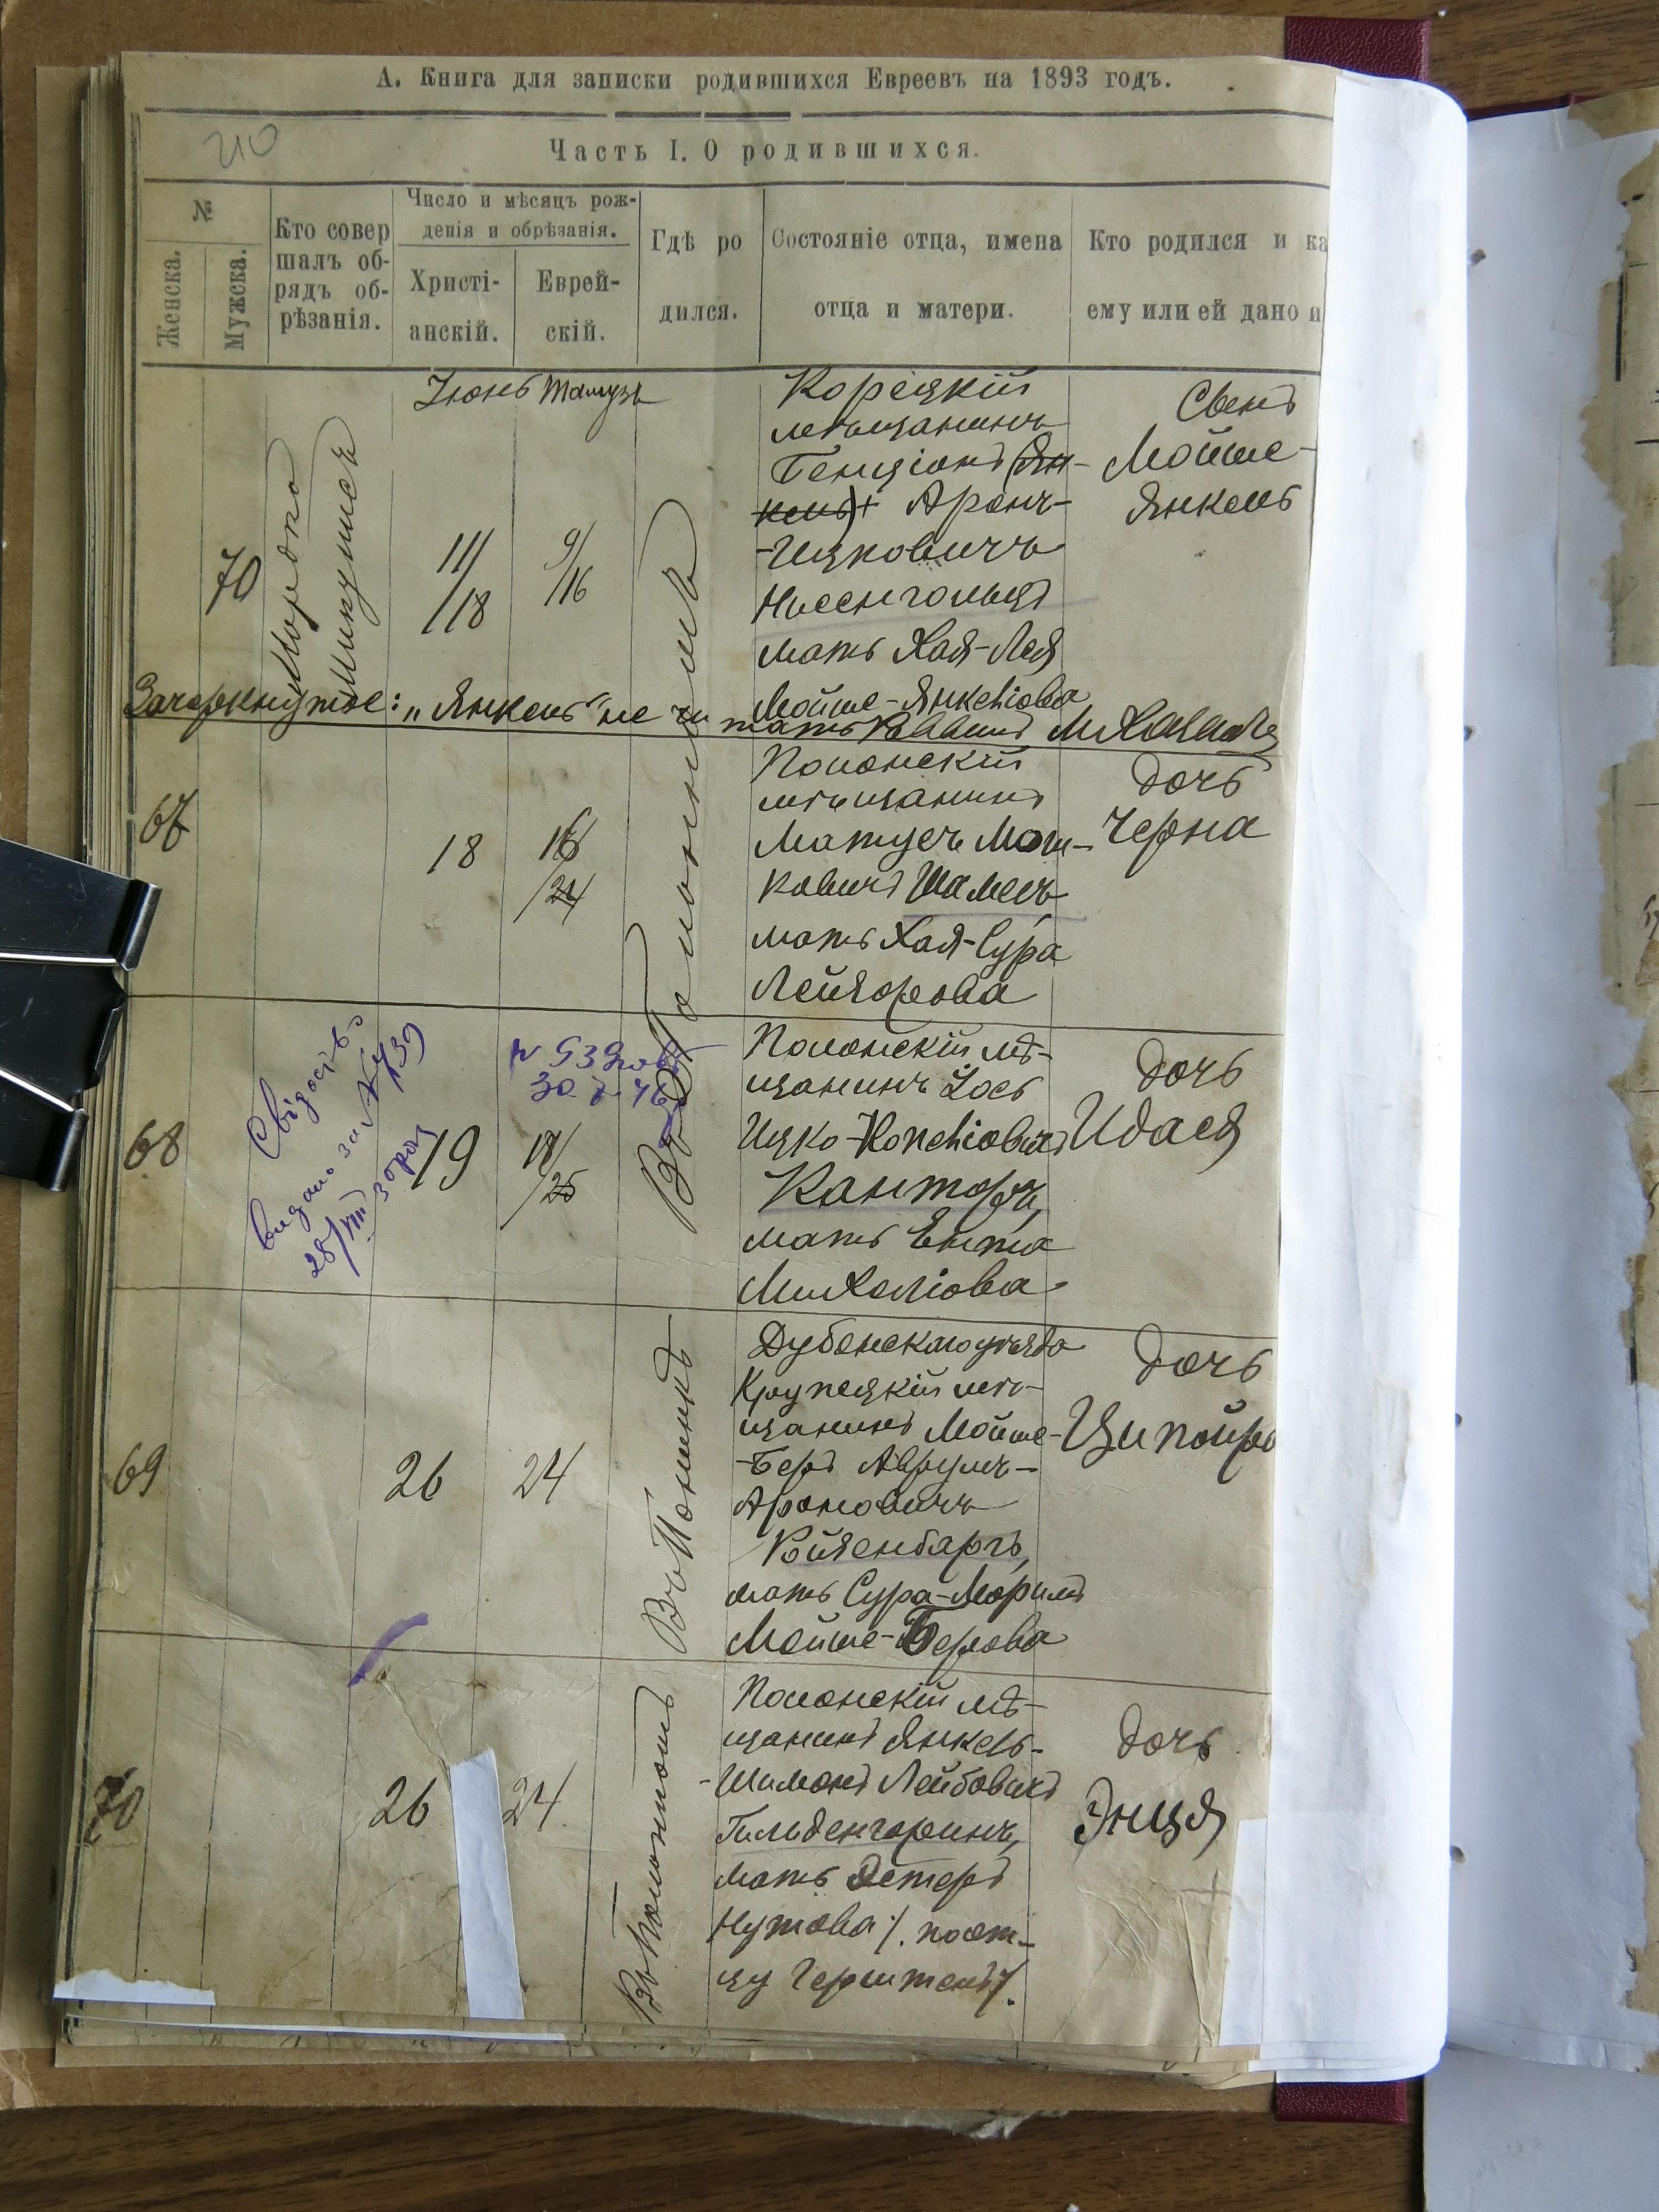 А. Книга для записки родившихся Евреевъ на 1893 годъ.
210
Часть I. О родившихся.
№
Женска.
Мужска.
Кто совер
шалъ об-
рядъ об-
рѣзанія.
Число и мѣсяцъ рож-
денія и обрѣзанія.
Христі-
анскій.
Еврей-
скій.
Гдѣ ро
дился.
Состояніе отца, имена
отца и матери.
Кто родился и ка
ему или ей дано и
Іюнь Тамузъ
70
Мордко
11/
/18
9/
/16
Въ Полонномъ
Корецкій
мѣщанинъ
Бенціонъ (Ян-
кель)+ Аронъ-
-Ицковичъ
Нисенгольцъ
мать Хая-Лея
Мойше-Янкеліова
Сынъ
Мойше-
Янкель
Зачеркнутое: „Янкель" не читать Раввинъ
67
18
16/
/24
Полонскій
мѣщанинъ
Матусъ Мош-
ковичъ Шамесъ
мать Хая-Сура
Лейзорова
дочь
Черна
68
Свідоцтво
видано за № 1739
28/VIII 30 року
19
17/
/25
№ 539
Полонскій мѣ-
щанинъ Іось
Ицко-Копеліовичъ
Канторъ,
мать Ента
Михеліова
дочь
Идася
69
26
24
Въ Полонномъ
Дубенскаго уѣзда
Крупецкій мѣ-
щанинъ Мойше-
-Беръ Аврумъ-
Ароновичъ
Ройзенбаргъ,
мать Сура-Маримъ
Мойше-Берова
дочь
Ципойра
70
26
24
Въ Полонномъ
Полонскій мѣ-
щанинъ Янкель-
-Шимонъ Лейбовичъ
Гильденгоринъ,
мать Эстеръ
Нутова /. по от-
цу Герштенъ/.
дочь
Энця